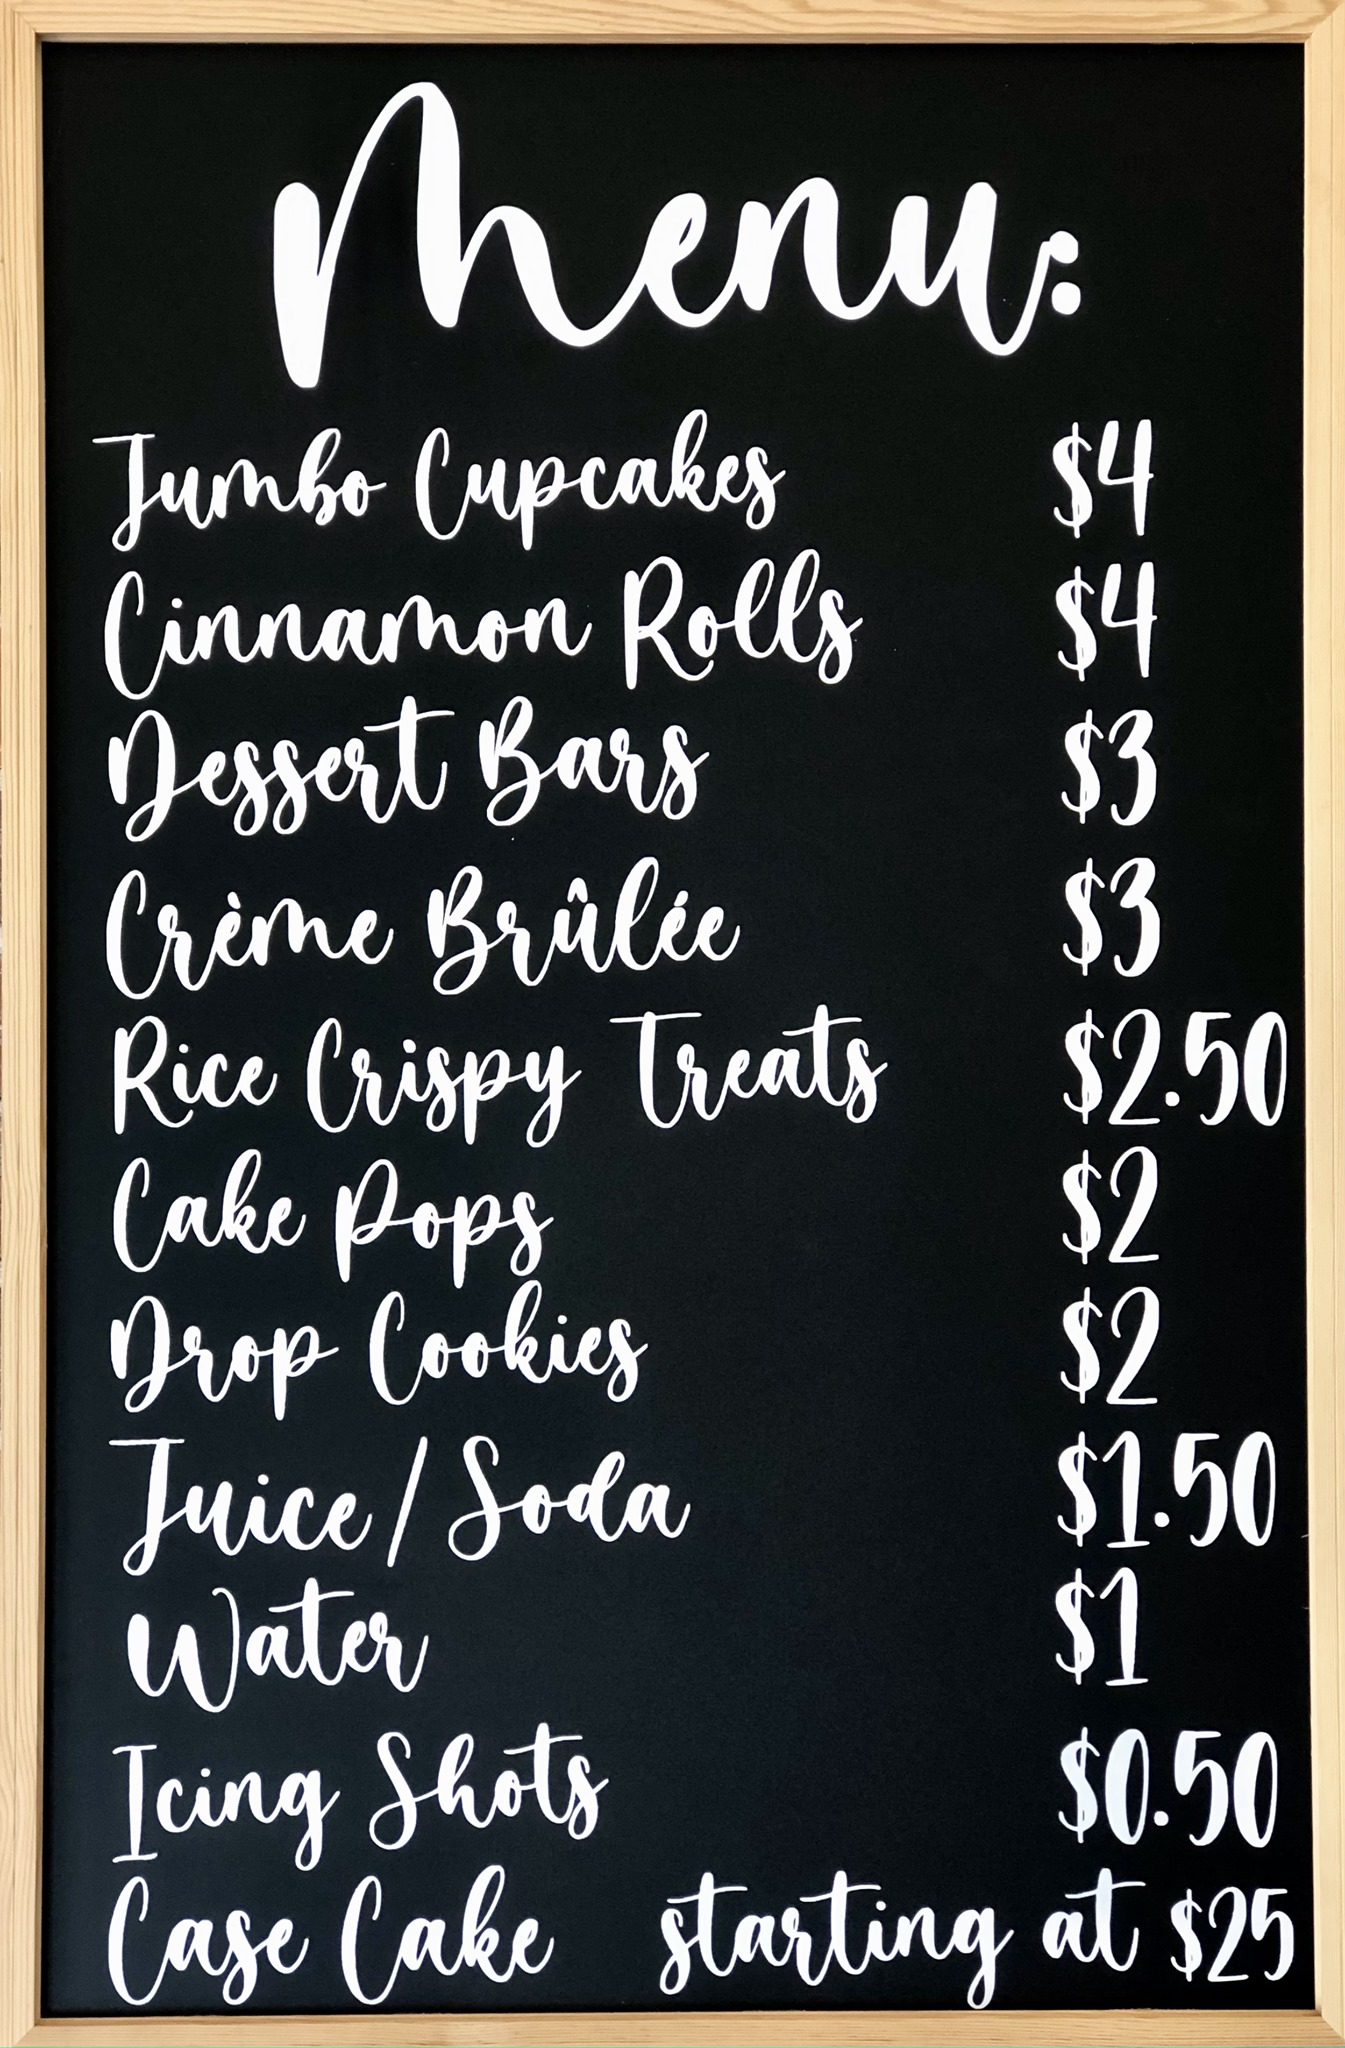 Menu:
Jumbo Cupcakes $4
Cinnamon Rolls $4
Dessert Bars $3
Crème Brûlée $3
Rice Crispy Treats $2.50
Cake Pops $2
Drop Cookies $2
Juice/Soda $1.50
Water $1
Icing Shots $0.50
Case Cake starting at $25